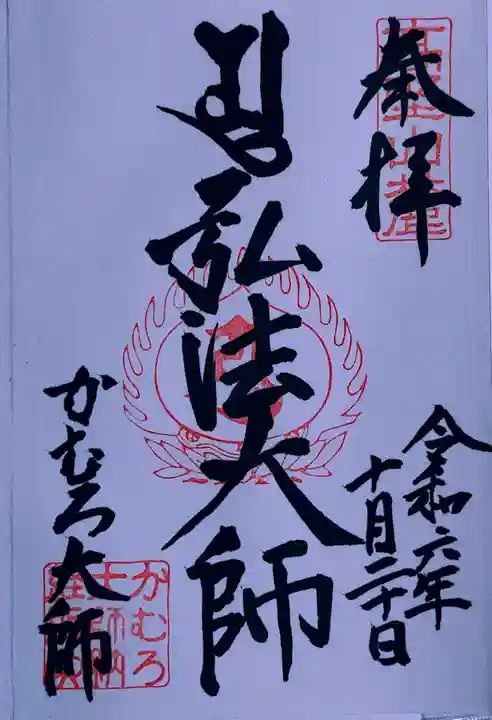 奉拝
令和六年
十月二十日
弘法大師
かむろ大師
かむろ
大師納
経之印